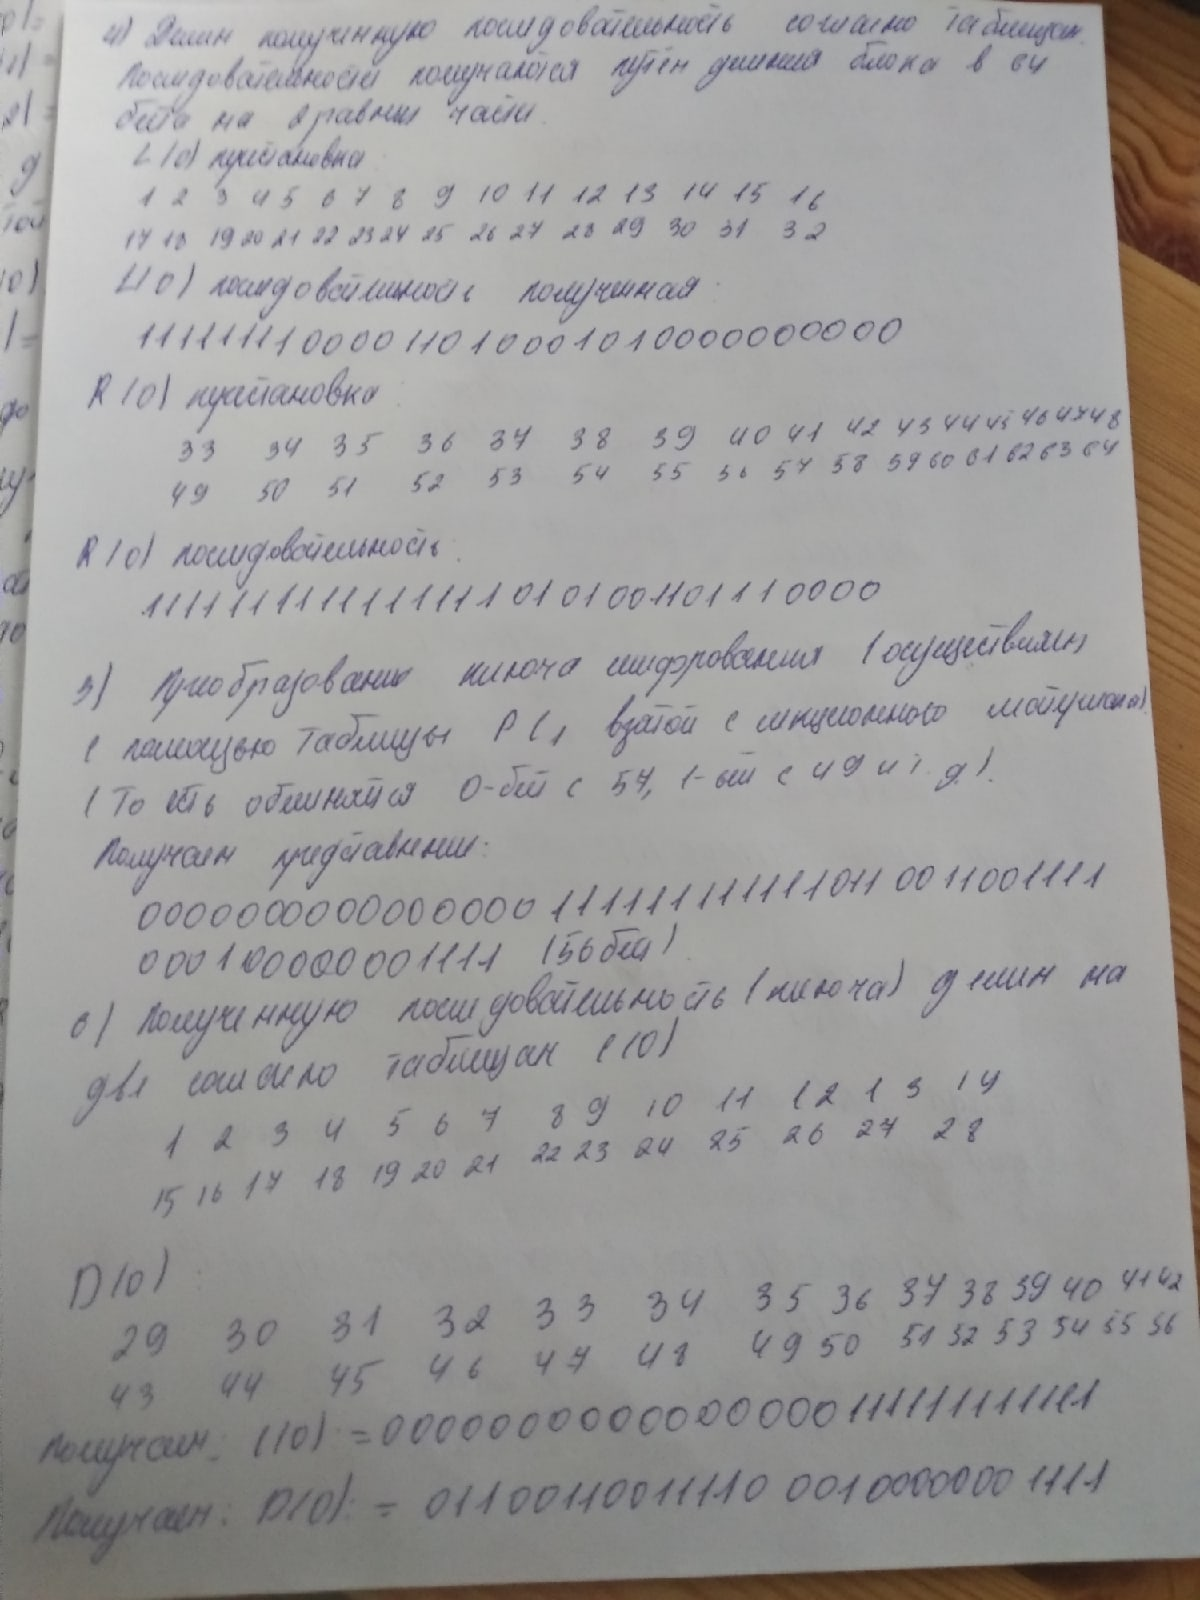 4) Делим полученную последовательность согласно таблицам.
Последовательности получаются путём деления блока в 64
бита на 2 равные части.
L(0) перестановка
1 2 3 4 5 6 7 8 9 10 11 12 13 14 15 16
17 18 19 20 21 22 23 24 25 26 27 28 29 30 31 32
L(0) последовательность полученная:
11111111000011010001010000000000
R(0) перестановка
33 34 35 36 37 38 39 40 41 42 43 44 45 46 47 48
49 50 51 52 53 54 55 56 57 58 59 60 61 62 63 64
R(0) последовательность:
11111111111111110101001101110000
5) Преобразование ключа шифрования (осуществляем
с помощью таблицы PC1, взятой с лекционного материала)
(То есть обменяется 0-бит с 57, 1-ый с 49 и т.д.).
Получаем представление:
00000000000000001111111111110110011001111
000100000001111 (56 бита)
6) Полученную последовательность (ключа) делим на
две согласно таблицам C(0)
1 2 3 4 5 6 7 8 9 10 11 12 13 14
15 16 17 18 19 20 21 22 23 24 25 26 27 28
D(0):
29 30 31 32 33 34 35 36 37 38 39 40 41 42
43 44 45 46 47 48 49 50 51 52 53 54 55 56
Получаем: C(0) = 0000000000000000111111111111
Получаем: D(0) = 0110011001111000100000001111